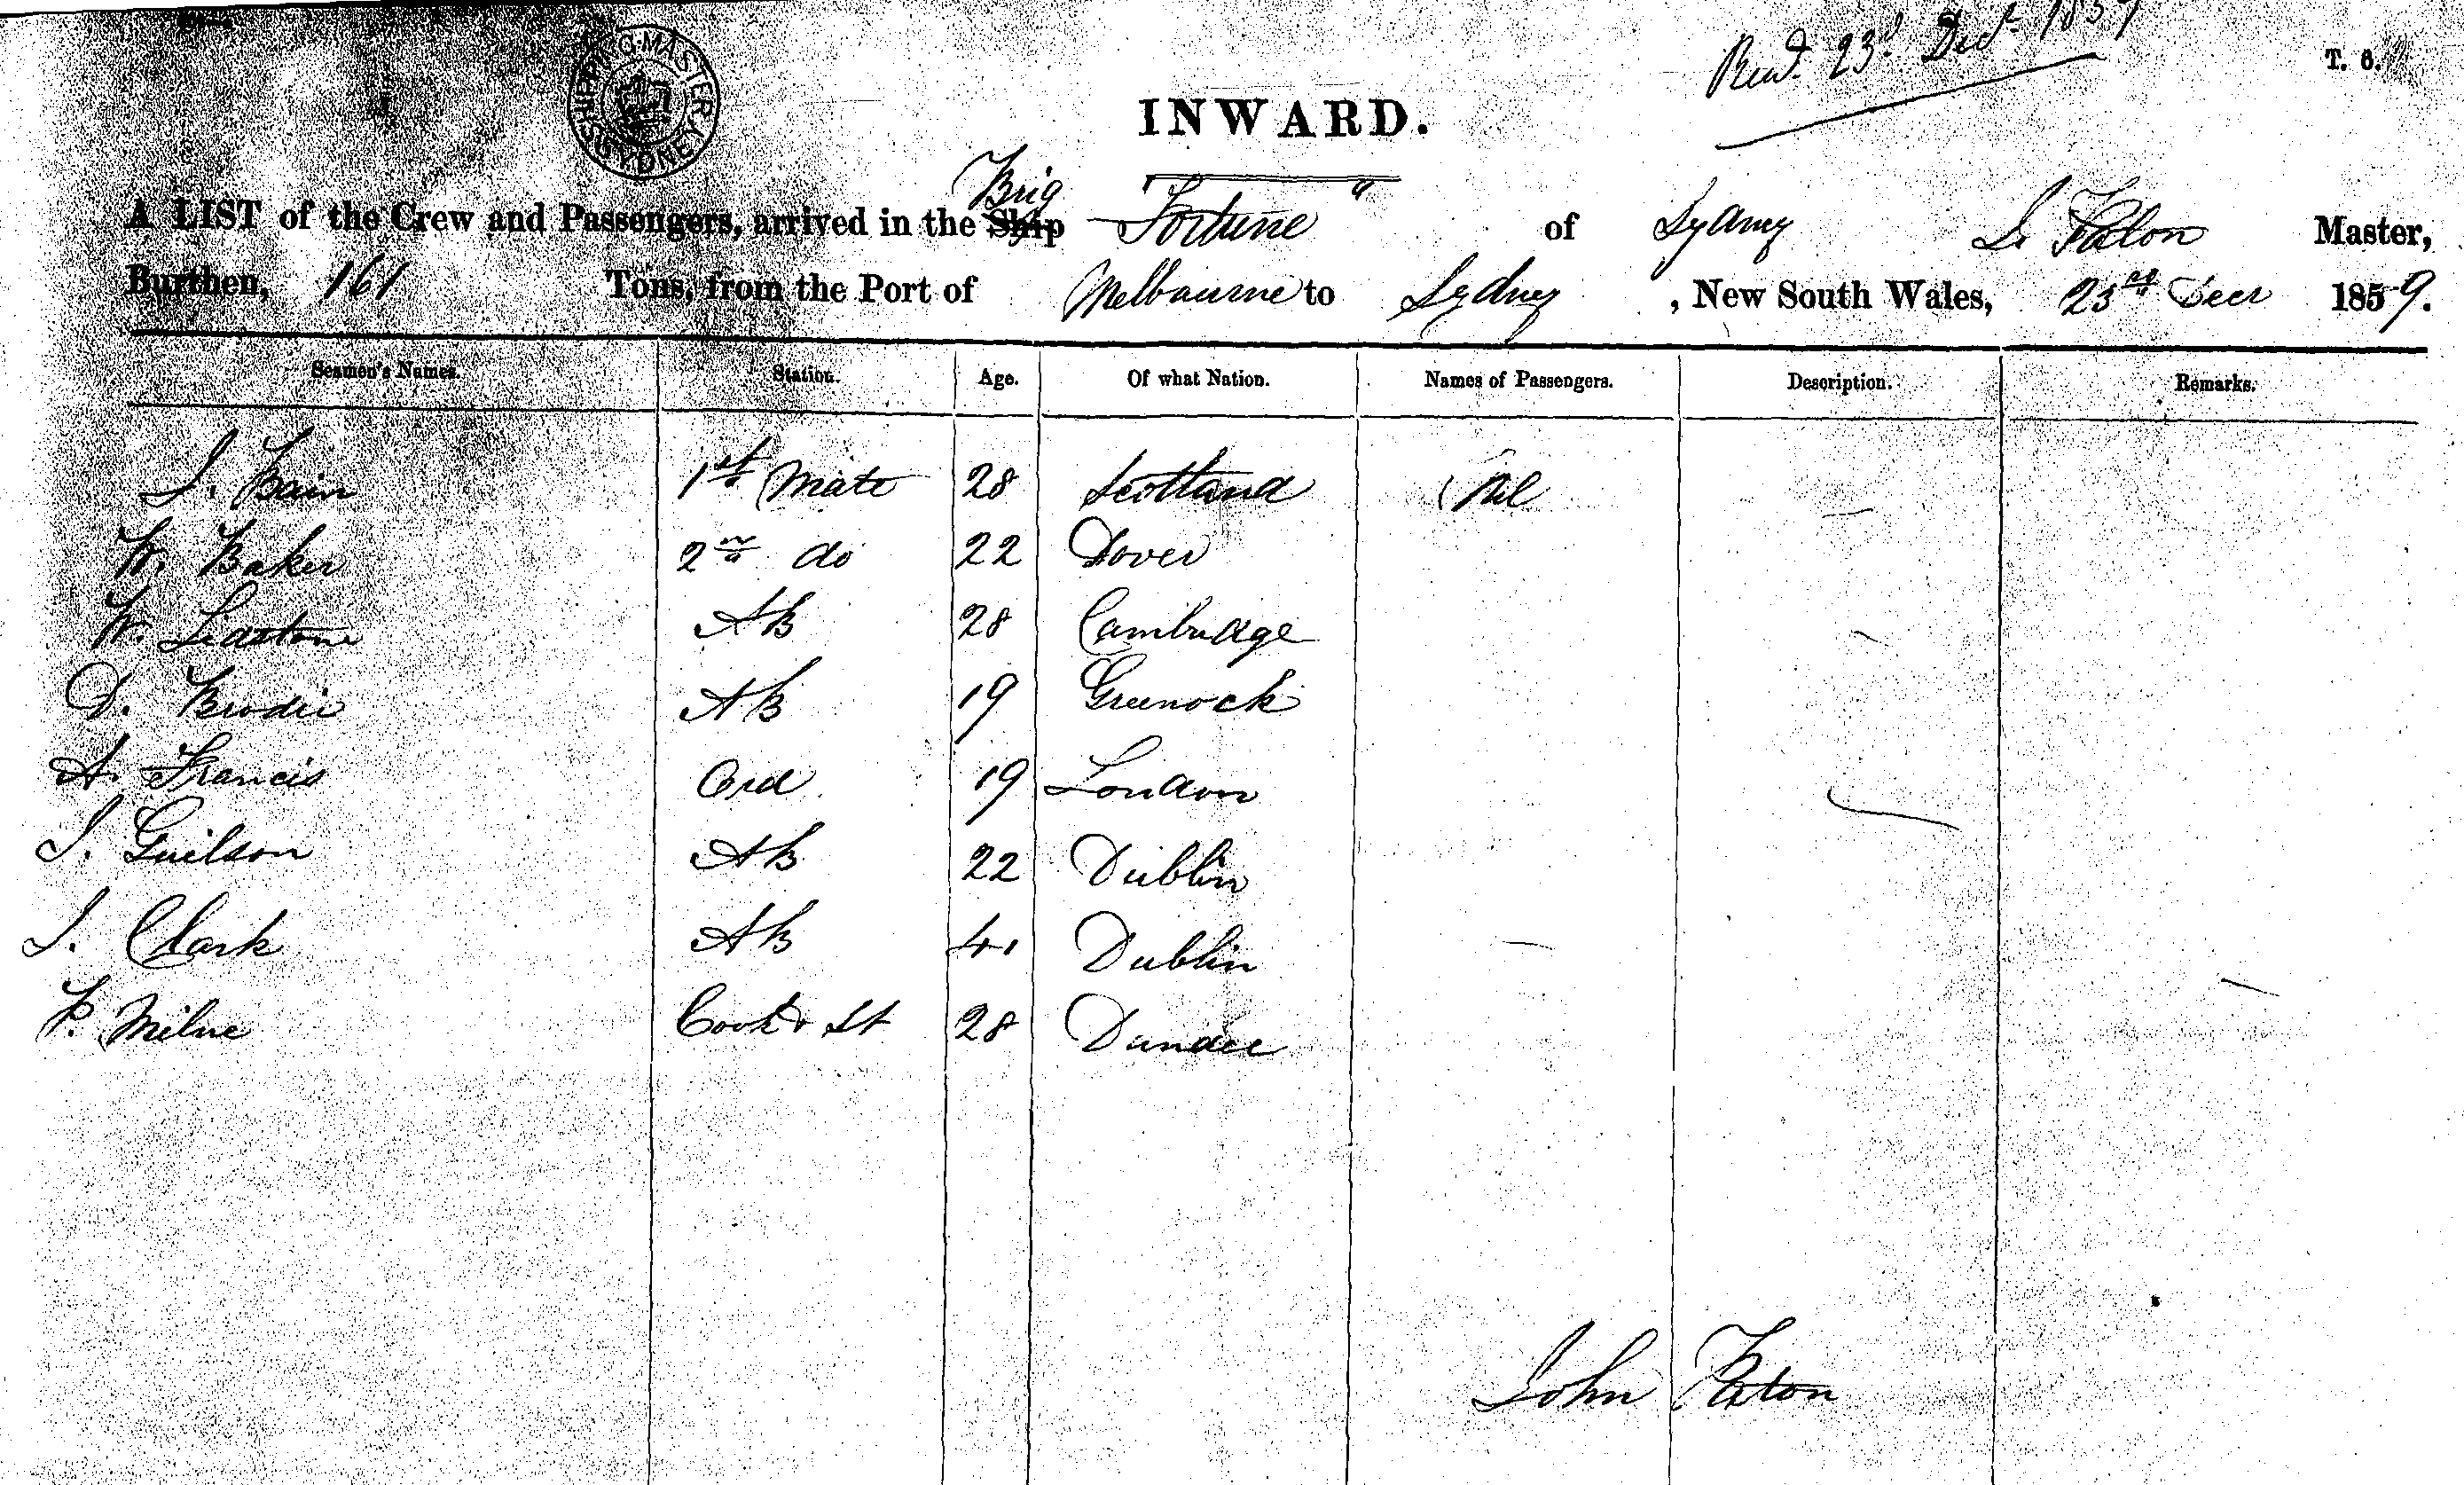 SHIPPING MASTER SYDNEY
Recd. 23d Decr 1859
T. 6.
INWARD.
Brig
A LIST of the Crew and Passengers, arrived in the Ship "Fortune" of Sydney J. Paton Master,
Burthen, 161 Tons, from the Port of Melbourne to Sydney, New South Wales, 23rd Decr 1859.
Seamen's Names. Station. Age. Of what Nation. Names of Passengers. Description. Remarks.
J. Bain 1st Mate 28 Scotland Nil
W. Baker 2nd do 22 Dover
W. Lidstone AB 28 Cambridge
D. Brodie AB 19 Greenock
A. Francis Ord 19 London
J. Guilson AB 22 Dublin
J. Clark AB 41 Dublin
P. Milne Cook & St 28 Dundee
John Paton